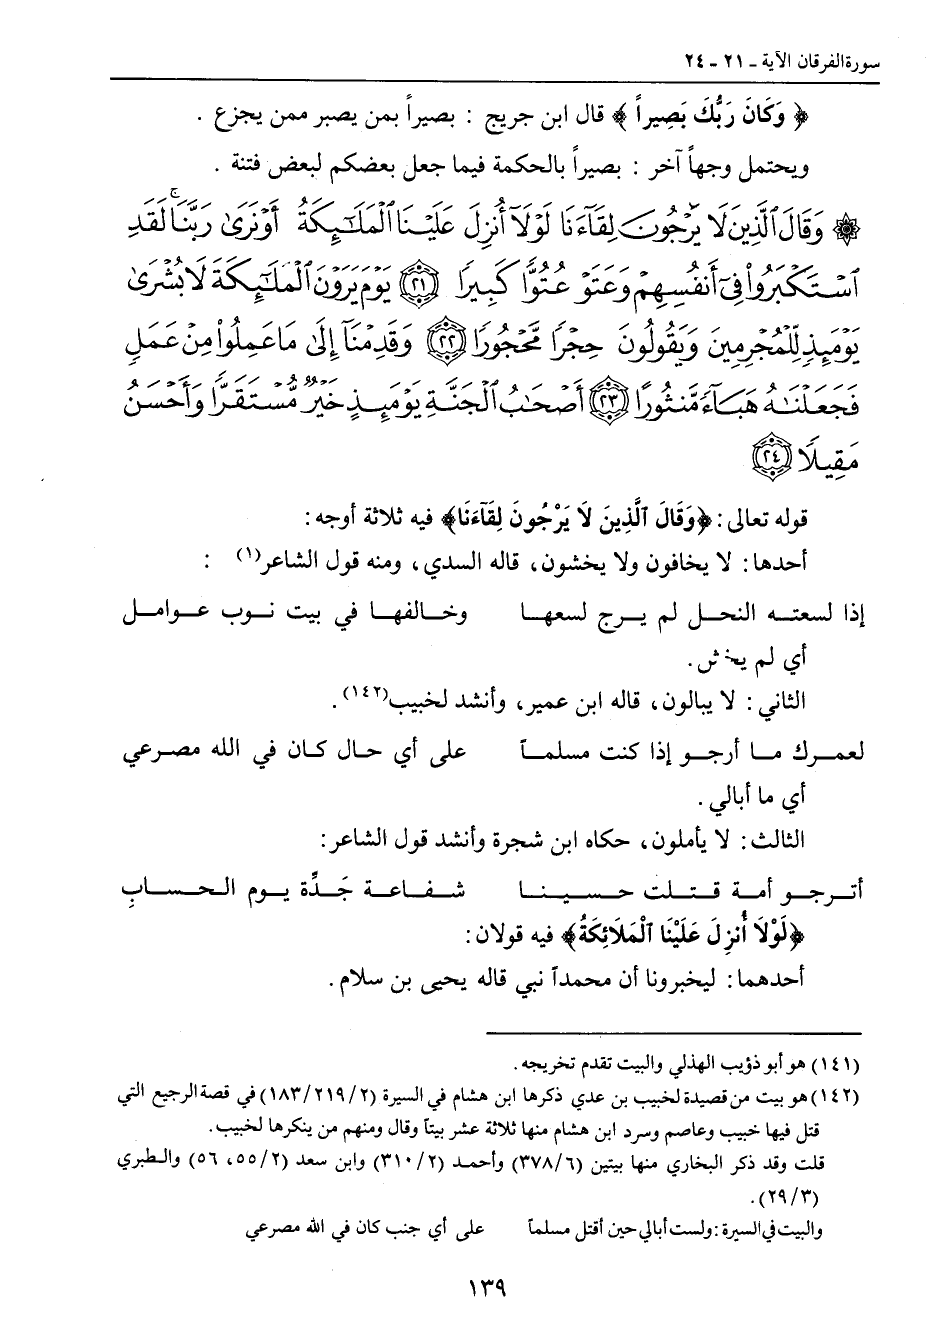 سورة الفرقان الآية ـ ٢١ - ٢٤
﴿ وَكَانَ رَبُّكَ بَصِيراً ﴾ قال ابن جريج : بصيراً بمن يصبر ممن يجزع .
ويحتمل وجهاً آخر : بصيراً بالحكمة فيما جعل بعضكم لبعض فتنة .
۞ وَقَالَ ٱلَّذِينَ لَا يَرْجُونَ لِقَآءَنَا لَوْلَآ أُنزِلَ عَلَيْنَا ٱلْمَلَـٰٓئِكَةُ أَوْ نَرَىٰ رَبَّنَا ۗ لَقَدِ
ٱسْتَكْبَرُوا۟ فِىٓ أَنفُسِهِمْ وَعَتَوْ عُتُوًّا كَبِيرًا ﴿٢١﴾ يَوْمَ يَرَوْنَ ٱلْمَلَـٰٓئِكَةَ لَا بُشْرَىٰ
يَوْمَئِذٍ لِّلْمُجْرِمِينَ وَيَقُولُونَ حِجْرًا مَّحْجُورًا ﴿٢٢﴾ وَقَدِمْنَآ إِلَىٰ مَا عَمِلُوا۟ مِنْ عَمَلٍ
فَجَعَلْنَـٰهُ هَبَآءً مَّنثُورًا ﴿٢٣﴾ أَصْحَـٰبُ ٱلْجَنَّةِ يَوْمَئِذٍ خَيْرٌ مُّسْتَقَرًّا وَأَحْسَنُ
مَقِيلًا ﴿٢٤﴾
قوله تعالى : ﴿وَقَالَ ٱلَّذِينَ لَا يَرْجُونَ لِقَآءَنَا﴾ فيه ثلاثة أوجه :
أحدها : لا يخافون ولا يخشون ، قاله السدي ، ومنه قول الشاعر(١) :
إذا لسعته النحل لم يرج لسعها وخالفها في بيت نوب عوامل
أي لم يخش .
الثاني : لا يبالون ، قاله ابن عمير ، وأنشد لخبيب(١٤٢) .
لعمرك ما أرجو إذا كنت مسلماً على أي حال كان في الله مصرعي
أي ما أبالي .
الثالث : لا يأملون ، حكاه ابن شجرة وأنشد قول الشاعر :
أترجو أمة قتلت حسينا شفاعة جَدِّه يوم الحسابِ
﴿لَوْلَا أُنزِلَ عَلَيْنَا ٱلْمَلَائِكَةُ﴾ فيه قولان :
أحدهما : ليخبرونا أن محمداً نبي قاله يحيى بن سلام .
(١٤١) هو أبو ذؤيب الهذلي والبيت تقدم تخريجه .
(١٤٢) هو بيت من قصيدة لخبيب بن عدي ذكرها ابن هشام في السيرة (٢/٢١٩/١٨٣) في قصة الرجيع التي
قتل فيها خبيب وعاصم وسرد ابن هشام منها ثلاثة عشر بيتاً وقال ومنهم من ينكرها لخبيب .
قلت وقد ذكر البخاري منها بيتين (٦/٣٧٨) وأحمد (٢/٣١٠) وابن سعد (٢/٥٥، ٥٦) والطبري
(٣/٢٩) .
والبيت في السيرة : ولست أبالي حين أقتل مسلماً على أي جنب كان في الله مصرعي
١٣٩